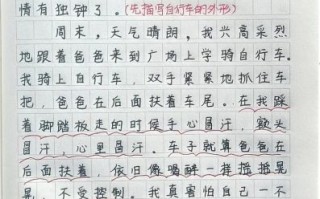 情有独钟了。(先描写自行车的外形)
周末，天气晴朗，我兴高采烈
地跟着爸爸来到广场上学骑自行车。
我骑上自行车，双手紧紧地抓住车
把，爸爸在后面扶着车尾。在我踩
着脚踏板走的时候手心冒汗，额头
冒汗，心里冒汗。车子就算爸爸在
后面扶着，依旧像喝醉一样摇摇晃
晃，不受控制。我真害怕自己一不